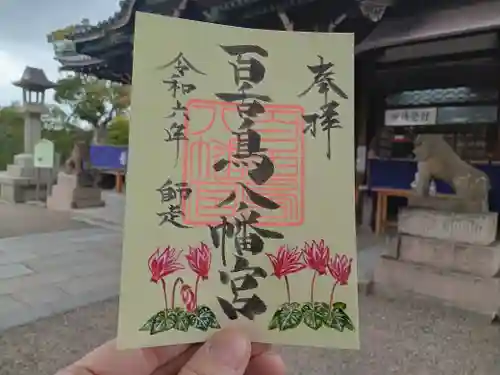 奉拝
百舌鳥八幡宮
令和六年 師走